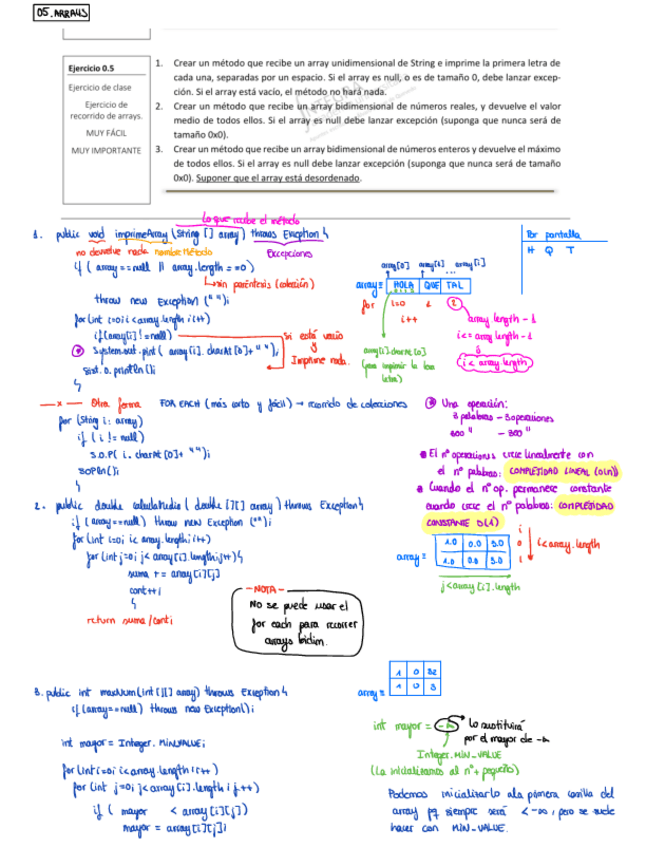 05. ARRAYS
Ejercicio 0.5
Ejercicio de clase
Ejercicio de
recorrido de arrays.
MUY FÁCIL
MUY IMPORTANTE
1. Crear un método que recibe un array unidimensional de String e imprime la primera letra de
cada una, separadas por un espacio. Si el array es null, o es de tamaño 0, debe lanzar excep-
ción. Si el array está vacío, el método no hará nada.
2. Crear un método que recibe un array bidimensional de números reales, y devuelve el valor
medio de todos ellos. Si el array es null debe lanzar excepción (suponga que nunca será de
tamaño 0x0).
3. Crear un método que recibe un array bidimensional de números enteros y devuelve el máximo
de todos ellos. Si el array es null debe lanzar excepción (suponga que nunca será de tamaño
0x0). Suponer que el array está desordenado.
Lo que recibe el método
1. public void imprimeArray (String [] array) throws Exception {
no devuelve nada nombre Método Excepciones
if ( array == null || array.length == 0)
sin paréntesis (colección)
throw new Exception (" ");
for (int i=0; i < array.length; i++)
if (array[i] != null)
System.out.print ( array[i]. charAt [0] + " ");
Sist. o. println ();
}
Si está vacío
y
Imprime nada.
Por pantalla
H Q T
array[0] array[1] array[i]
array = HOLA QUE TAL
for i=0 1 2
i++
array[i].charAt [0]
(para imprimir la 1era
letra)
array length - 1
i <= array length - 1
i < array.length
— x — Otra forma FOR EACH (más corto y fácil) → recorrido de colecciones
for (String i : array)
if ( i != null)
S.O.P( i. charAt [0] + " ");
SOPln();
}
Una operación:
3 palabras - 3 operaciones
300 " - 300 "
El nº operaciones crece linealmente con
el nº palabras: COMPLEJIDAD LINEAL (O(n))
Cuando el nº op. permanece constante
cuando crece el nº palabras: COMPLEJIDAD
CONSTANTE O(1)
2. public double calculaMedia ( double [][] array ) throws Exception {
if ( array == null) throw new Exception (" ");
for (int i=0; i < array.length; i++)
for (int j=0; j < array [i]. length; j++) {
suma += array[i][j]
cont++;
}
return suma / cont;
— NOTA —
No se puede usar el
for each para recorrer
arrays bidim.
i
array = 1.0 0.0 3.0 0 i < array.length
1.0 0.0 3.0 1
j < array [i]. length
3. public int maxNum (int [][] array) throws Exception {
if (array == null) throws new Exception();
int mayor = Integer. MIN_VALUE;
for (int i=0; i < array.length; i++)
for (int j=0; j < array [i]. length; j++)
if ( mayor < array [i][j])
mayor = array[i][j];
1 0 32
array = 1 0 3
int mayor = Lo sustituirá
Integer. MIN_VALUE
(Lo inicializamos al nº + pequeño)
Podemos inicializarlo a la primera casilla del
array pq siempre será < -∞, pero se suele
hacer con MIN_VALUE.